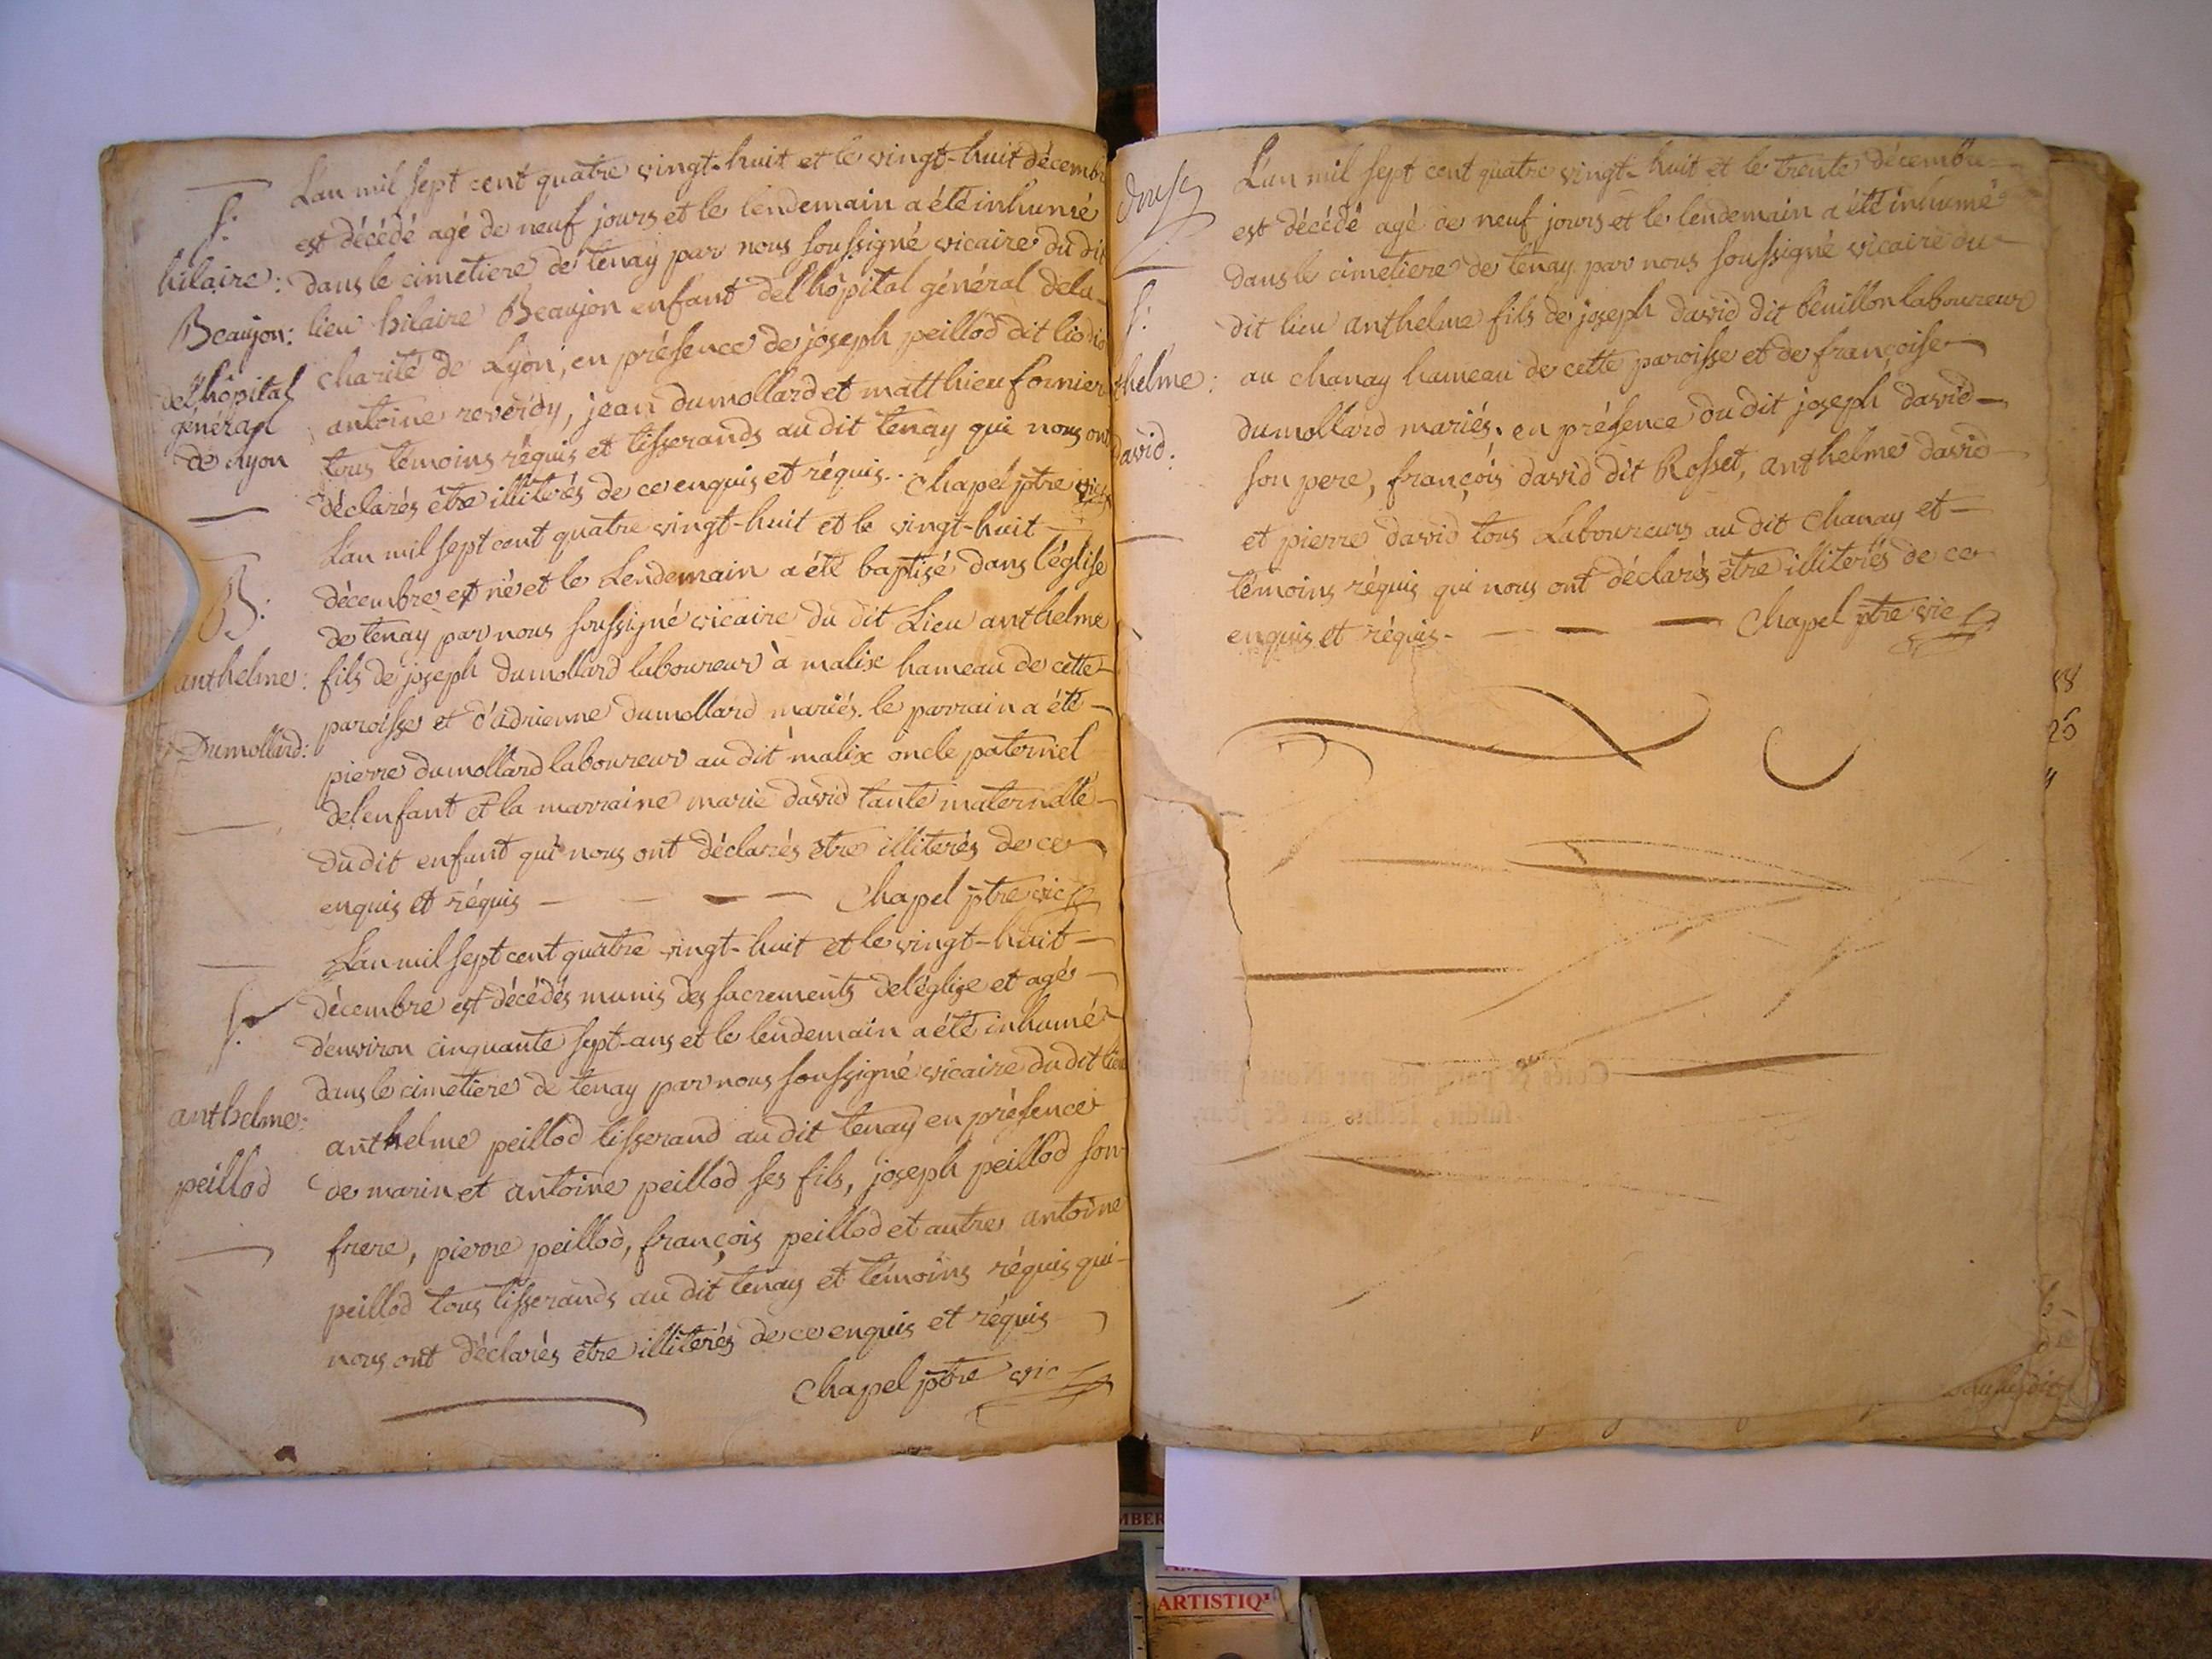 L'an mil sept cent quatre vingt-huit et le vingt-huit décembre
S: est décédé agé de neuf jours et le lendemain a été inhumé
hilaire: dans le cimetiere de tenay par nous soussigné vicaire du dit
Beaujon: lieu hilaire Beaujon enfant del'hôpital général dela
del'hôpital charité de Lyon, en présence de joseph peillod dit
général antoine reverdy, jean dumollard et matthieu fornier
de Lyon tous témoins réquis et tisserands au dit tenay qui nous ont
déclarés être illiterés de ce enquis et réquis.. Chapel ptre vic
L'an mil sept cent quatre vingt-huit et le vingt-huit
B: décembre est né et le Lendemain a été baptisé dans l'église
de tenay par nous soussigné vicaire du dit Lieu anthelme
anthelme: fils de joseph dumollard laboureur à malix hameau de cette
paroisse et d'adrienne dumollard mariés. le parrain a été
Dumollard: pierre dumollard laboureur au dit malix oncle paternel
del'enfant et la marraine marie david tante maternelle
du dit enfant qui nous ont déclarés etre illiterés de ce
enquis et réquis — — — — Chapel ptre vic
L'an mil sept cent quatre vingt-huit et le vingt-huit
S. décembre est décédés munis des sacrements del'église et agés
d'environ cinquante sept-ans et le lendemain a été inhumé
dans le cimetiere de tenay par nous soussigné vicaire du dit lieu
anthelme: anthelme peillod tisserand au dit tenay en présence
peillod de marin et antoine peillod ses fils, joseph peillod son
frere, pierre peillod, françois peillod et autre antoine
peillod tous tisserands au dit tenay et témoins réquis qui
nous ont déclarés être illiterés de ce enquis et réquis
Chapel ptre vic
L'an mil sept cent quatre vingt-huit et le trente décembre
est décédé agé de neuf jours et le lendemain a été inhumé
dans le cimetiere de tenay par nous soussigné vicaire du
S: dit lieu anthelme fils de joseph david dit beuillon laboureur
thelme: au chanay hameau de cette paroisse et de françoise
dumollard mariés. en présence du dit joseph david
david: son pere, françois david dit Rosset, anthelme david
et pierre david tous Laboureurs au dit Chanay et
témoins réquis qui nous ont déclarés être illiterés de ce
enquis et réquis. — — — Chapel ptre vic
ARTISTIQ